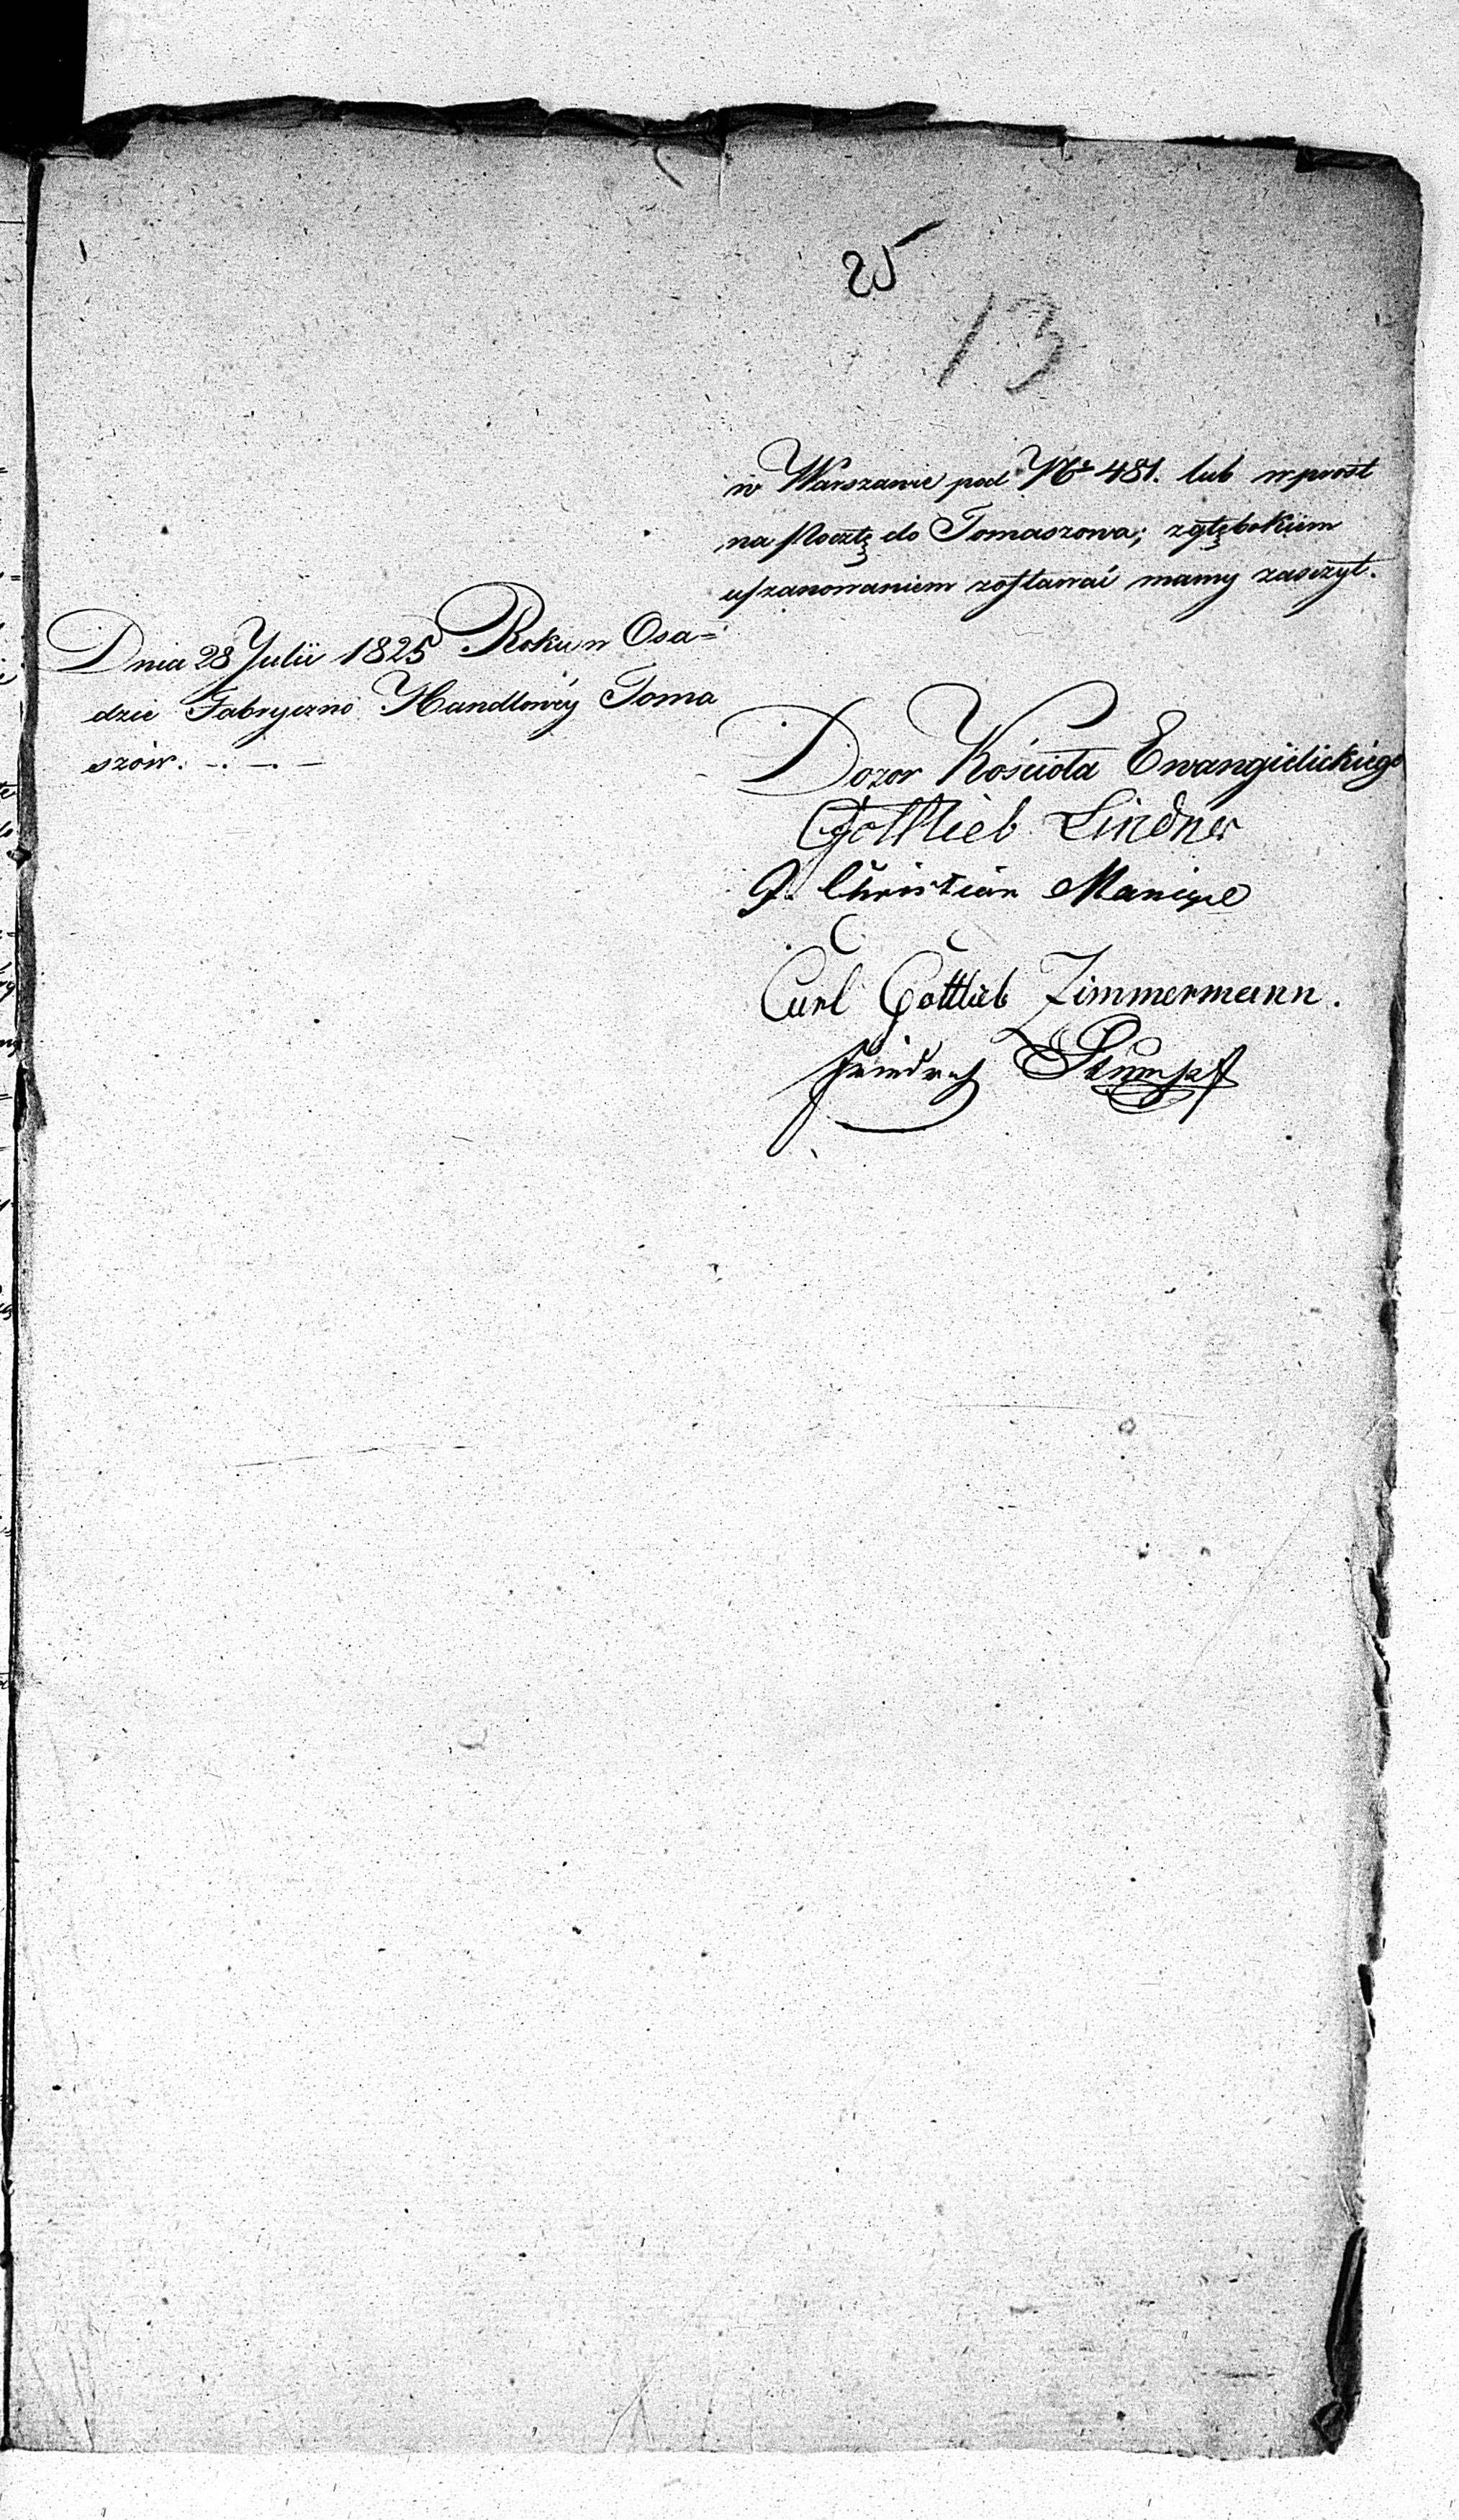 25
13
w Warszawie pod Nº 481. lub wprost
na Pocztę do Tomaszowa; zgłębokiem
uszanowaniem zostawać mamy zasczyt.
Dnia 28 Julii 1825 Roku w Osa=
dzie Fabryczno Handlowéy Toma
szów.
Dozor Kościoła Ewangielickiego
Gottlieb Lindner
J. Christian
Carl Gottlieb Zimmermann.
Friedrich Stumpf